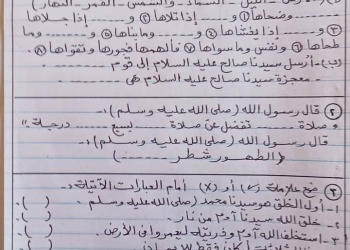 (أ) .... الليل - السماء - والشمس - القمر - النهار)
........ وضحاها ① و ........ إذا تلاها ② و ........ إذا جلاها
③ و ........ إذا يغشاها ④ و ........ وما بناها ⑤ و ........ وما
طحاها ⑥ ونفس وما سواها ⑦ فألهمها فجورها وتقواها ⑧
(ب) - أرسل سيدنا صالح عليه السلام إلى قوم ........
- معجزة سيدنا صالح عليه السلام هى ........
② قال رسول الله (صلى الله عليه وسلم) :-
" صلاة ........ تفضل عن صلاة ........ بسبع ........ درجة "
قال رسول الله (صلى الله عليه وسلم) :-
( الطهور شطر ........ )
③ ضع علامة (√) أو (X) أمام العبارات الآتية :-
١- أول الخلق هو سيدنا محمد (صلى الله عليه وسلم). ( )
٢- خلق الله سيدنا آدم من نار. ( )
٣- استخلف الله آدم وذريته ليعمروا فى الأرض. ( )